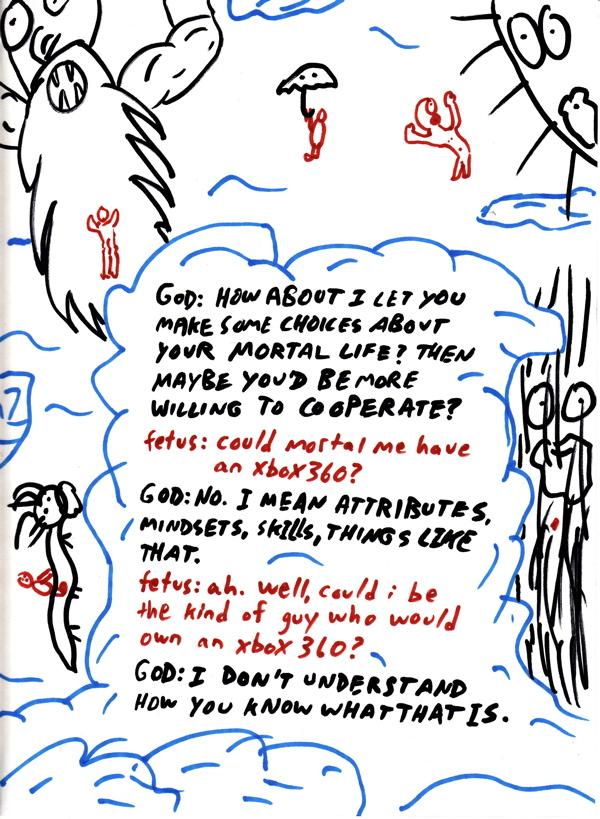 GOD: HOW ABOUT I LET YOU
MAKE SOME CHOICES ABOUT
YOUR MORTAL LIFE? THEN
MAYBE YOU'D BE MORE
WILLING TO COOPERATE?
fetus: could mortal me have
an xbox 360?
GOD: NO. I MEAN ATTRIBUTES,
MINDSETS, SKILLS, THINGS LIKE
THAT.
fetus: ah. well, could i be
the kind of guy who would
own an xbox 360?
GOD: I DON'T UNDERSTAND
HOW YOU KNOW WHAT THAT IS.